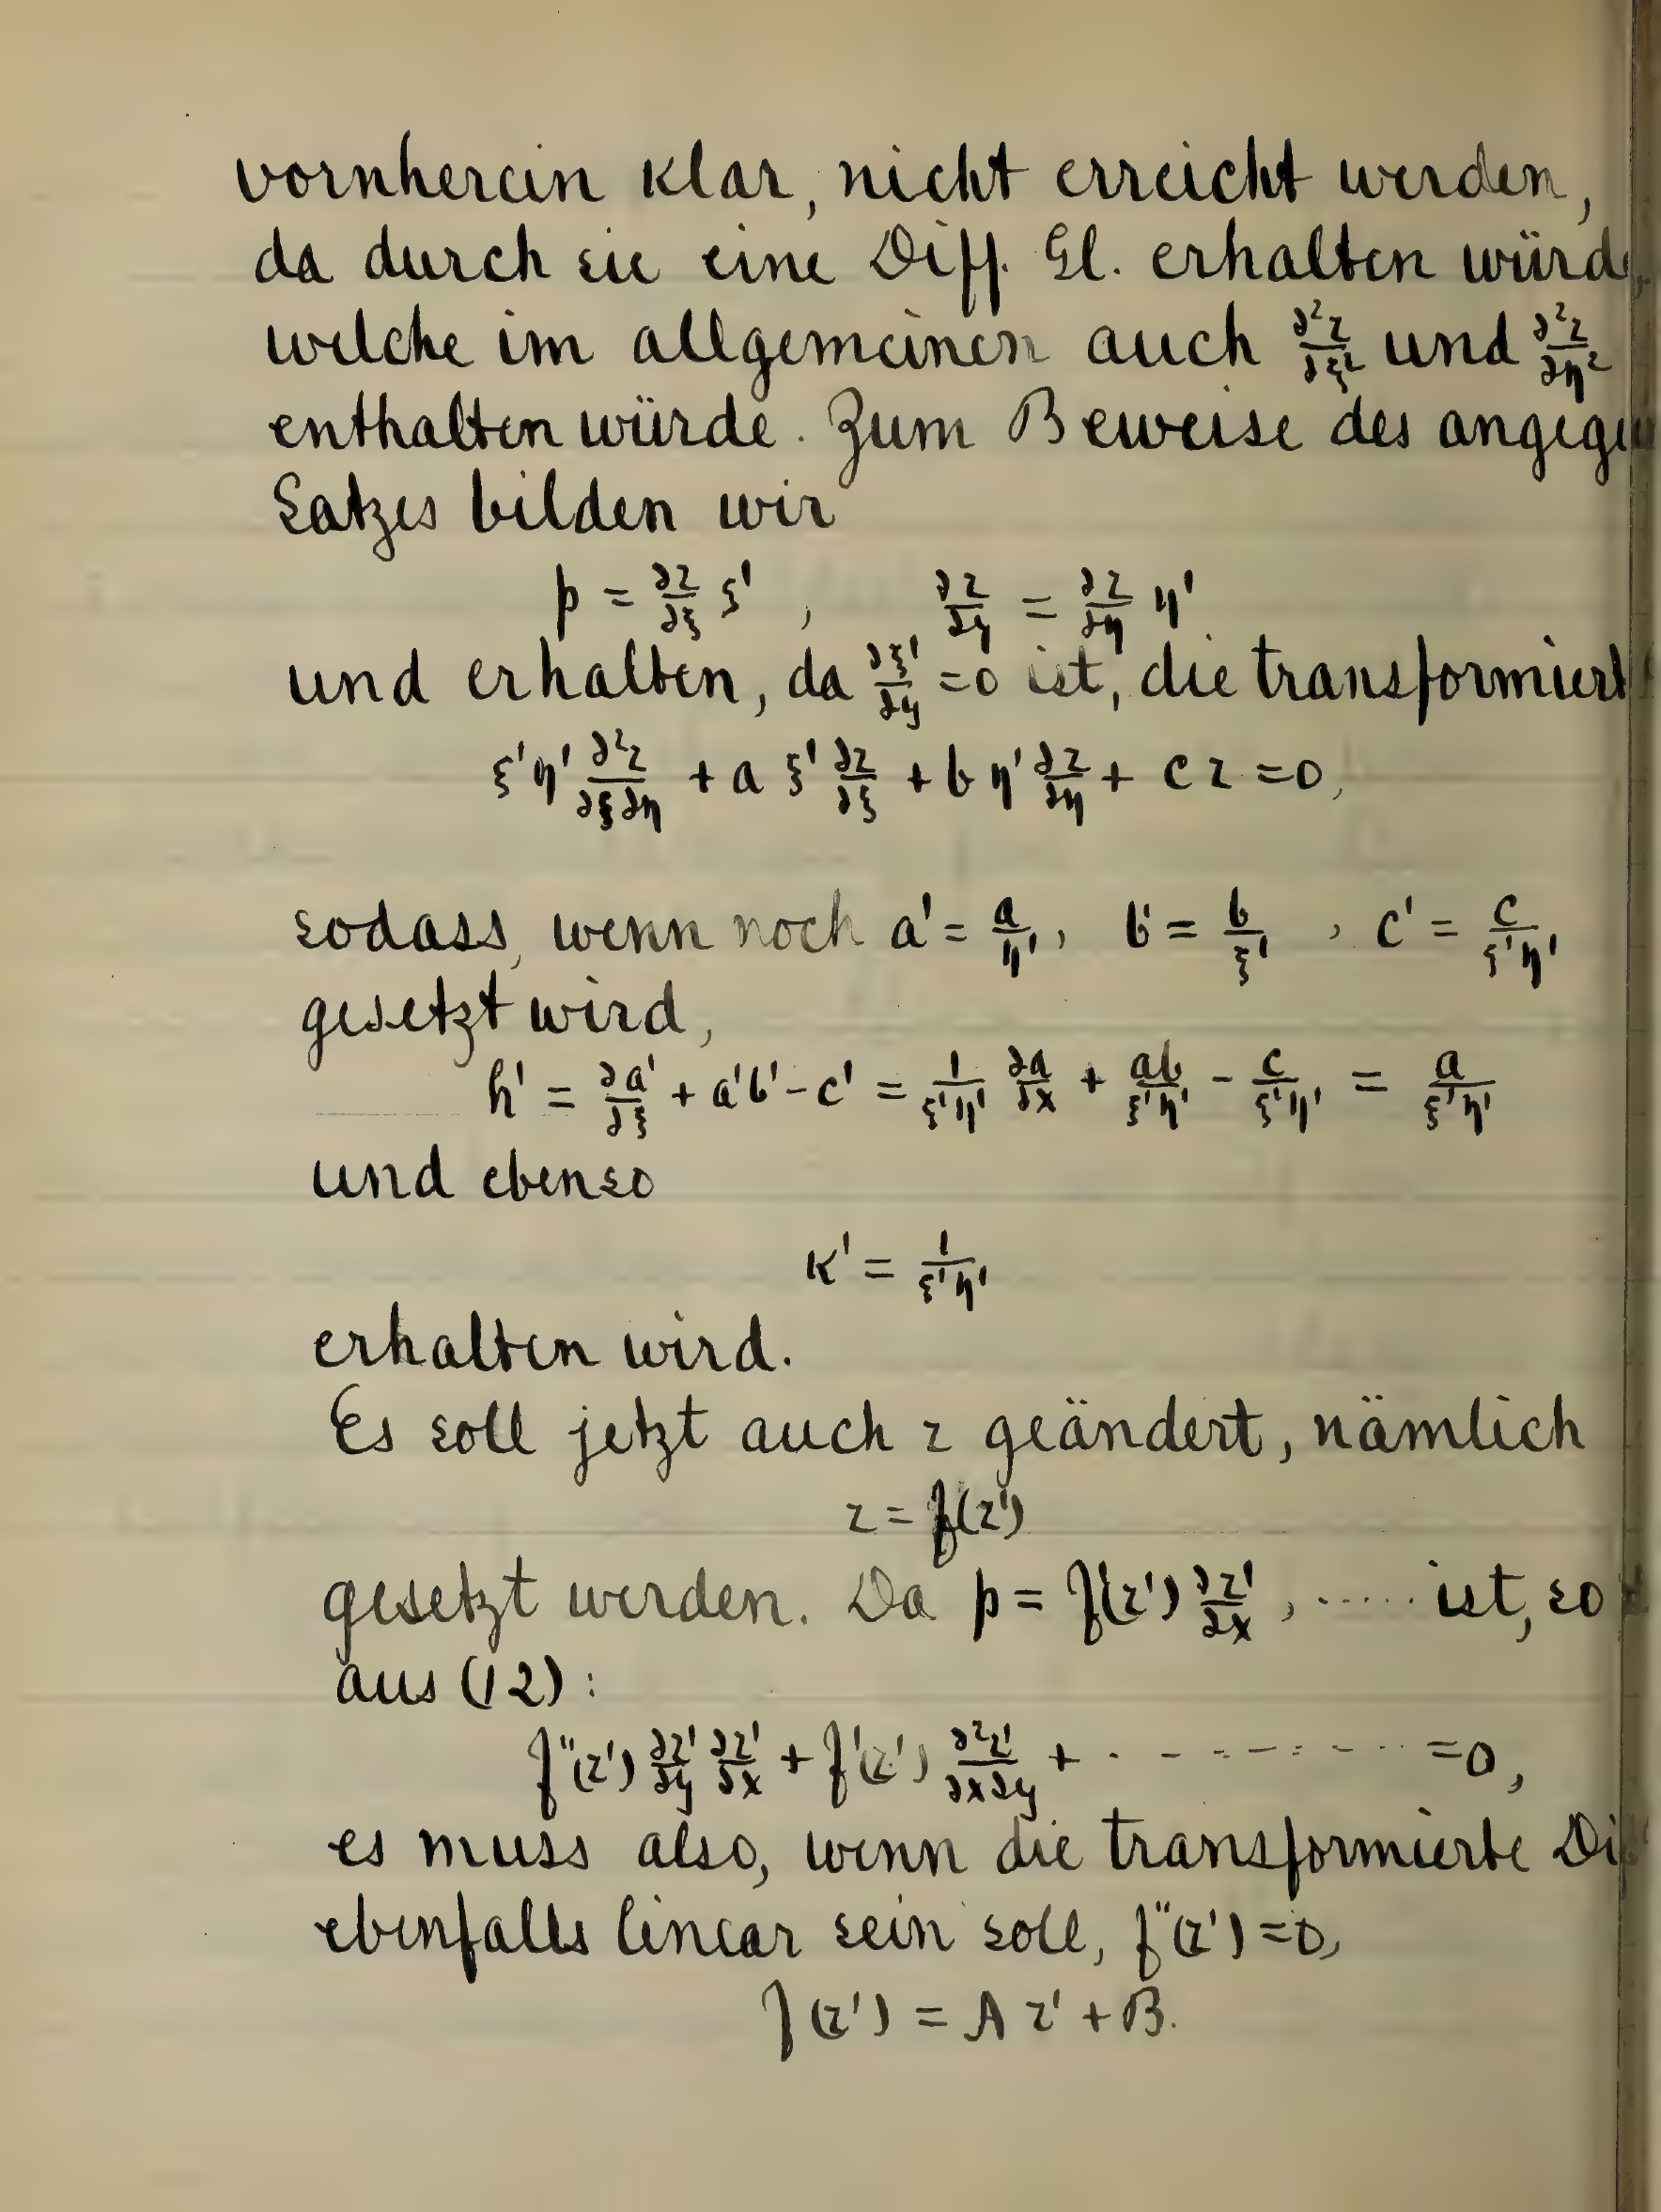 vornherein klar, nicht erreicht werden,
da durch sie eine Diff. Gl. erhalten würde,
welche im allgemeinen auch ∂²z/∂ξ² und ∂²z/∂η²
enthalten würde. Zum Beweise des
Satzes bilden wir
p = ∂z/∂ξ ξ' , ∂z/∂y = ∂z/∂η η'
und erhalten, da ∂ξ'/∂y = 0 ist, die transformiert
ξ'η' ∂²z/∂ξ∂η + a ξ' ∂z/∂ξ + b η' ∂z/∂η + c z = 0,
sodass, wenn noch a' = a/η', b' = b/ξ' , c' = c/ξ'η'
gesetzt wird,
h' = ∂a'/∂ξ + a'b' - c' = 1/ξ'η' ∂a/∂x + ab/ξ'η' - c/ξ'η' = a/ξ'η'
und ebenso
k' = 1/ξ'η'
erhalten wird.
Es soll jetzt auch z geändert, nämlich
z = f(z')
gesetzt werden. Da p = f'(z') ∂z'/∂x , ..... ist, so
aus (12):
f''(z') ∂z'/∂y ∂z'/∂x + f'(z') ∂²z'/∂x∂y + . - - - - - - . = 0,
es muss also, wenn die transformierte
ebenfalls linear sein soll, f''(z') = 0,
f(z') = A z' + B.